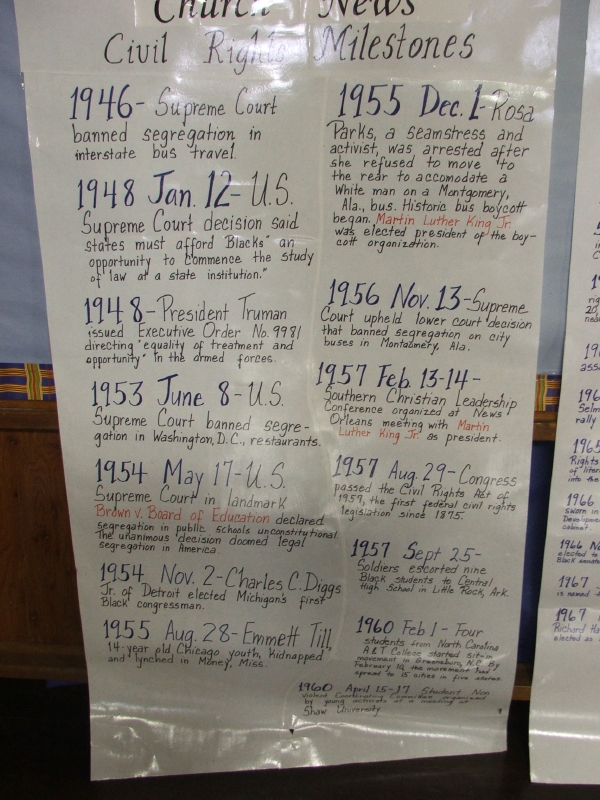 Church News
Civil Rights Milestones
1946- Supreme Court
banned segregation in
interstate bus travel.
1948 Jan. 12- U.S.
Supreme Court decision said
states must afford Blacks "an
opportunity to commence the study
of law at a state institution."
1948- President Truman
issued Executive Order No. 9981
directing "equality of treatment and
opportunity" in the armed forces.
1953 June 8- U.S.
Supreme Court banned segre-
gation in Washington, D.C., restaurants.
1954 May 17- U.S.
Supreme Court in landmark
Brown v. Board of Education declared
segregation in public schools unconstitutional.
The unanimous decision doomed legal
segregation in America.
1954 Nov. 2- Charles C. Diggs
Jr. of Detroit elected Michigan's first
Black congressman.
1955 Aug. 28- Emmett Till,
14-year old Chicago youth, kidnapped
and lynched in Money, Miss.
1955 Dec. 1- Rosa
Parks, a seamstress and
activist, was arrested after
she refused to move to
the rear to accomodate a
White man on a Montgomery,
Ala., bus. Historic bus boycott
began. Martin Luther King Jr.
was elected president of the boy-
cott organization.
1956 Nov. 13- Supreme
Court upheld lower court decision
that banned segregation on city
buses in Montgomery, Ala.
1957 Feb. 13-14-
Southern Christian Leadership
Conference organized at News
Orleans meeting with Martin
Luther King Jr. as president.
1957 Aug. 29- Congress
passed the Civil Rights Act of
1957, the first federal civil rights
legislation since 1875.
1957 Sept 25-
Soldiers escorted nine
Black students to Central
High School in Little Rock, Ark.
1960 Feb 1- Four
students from North Carolina
A&T College started sit-in
movement in Greensburo, N.C. By
February 10, the movement had
spread to 15 cities in five states.
1960 April 15-17 Student Non
violent Coordinating Committee organized
by young activists at a meeting at
Shaw University.
1965
Rights
of liter
into the
1966
sworn in
Developme
cabinet.
1966 No
elected to
Black senato
1967
is named
1967
Richard Ha
elected as